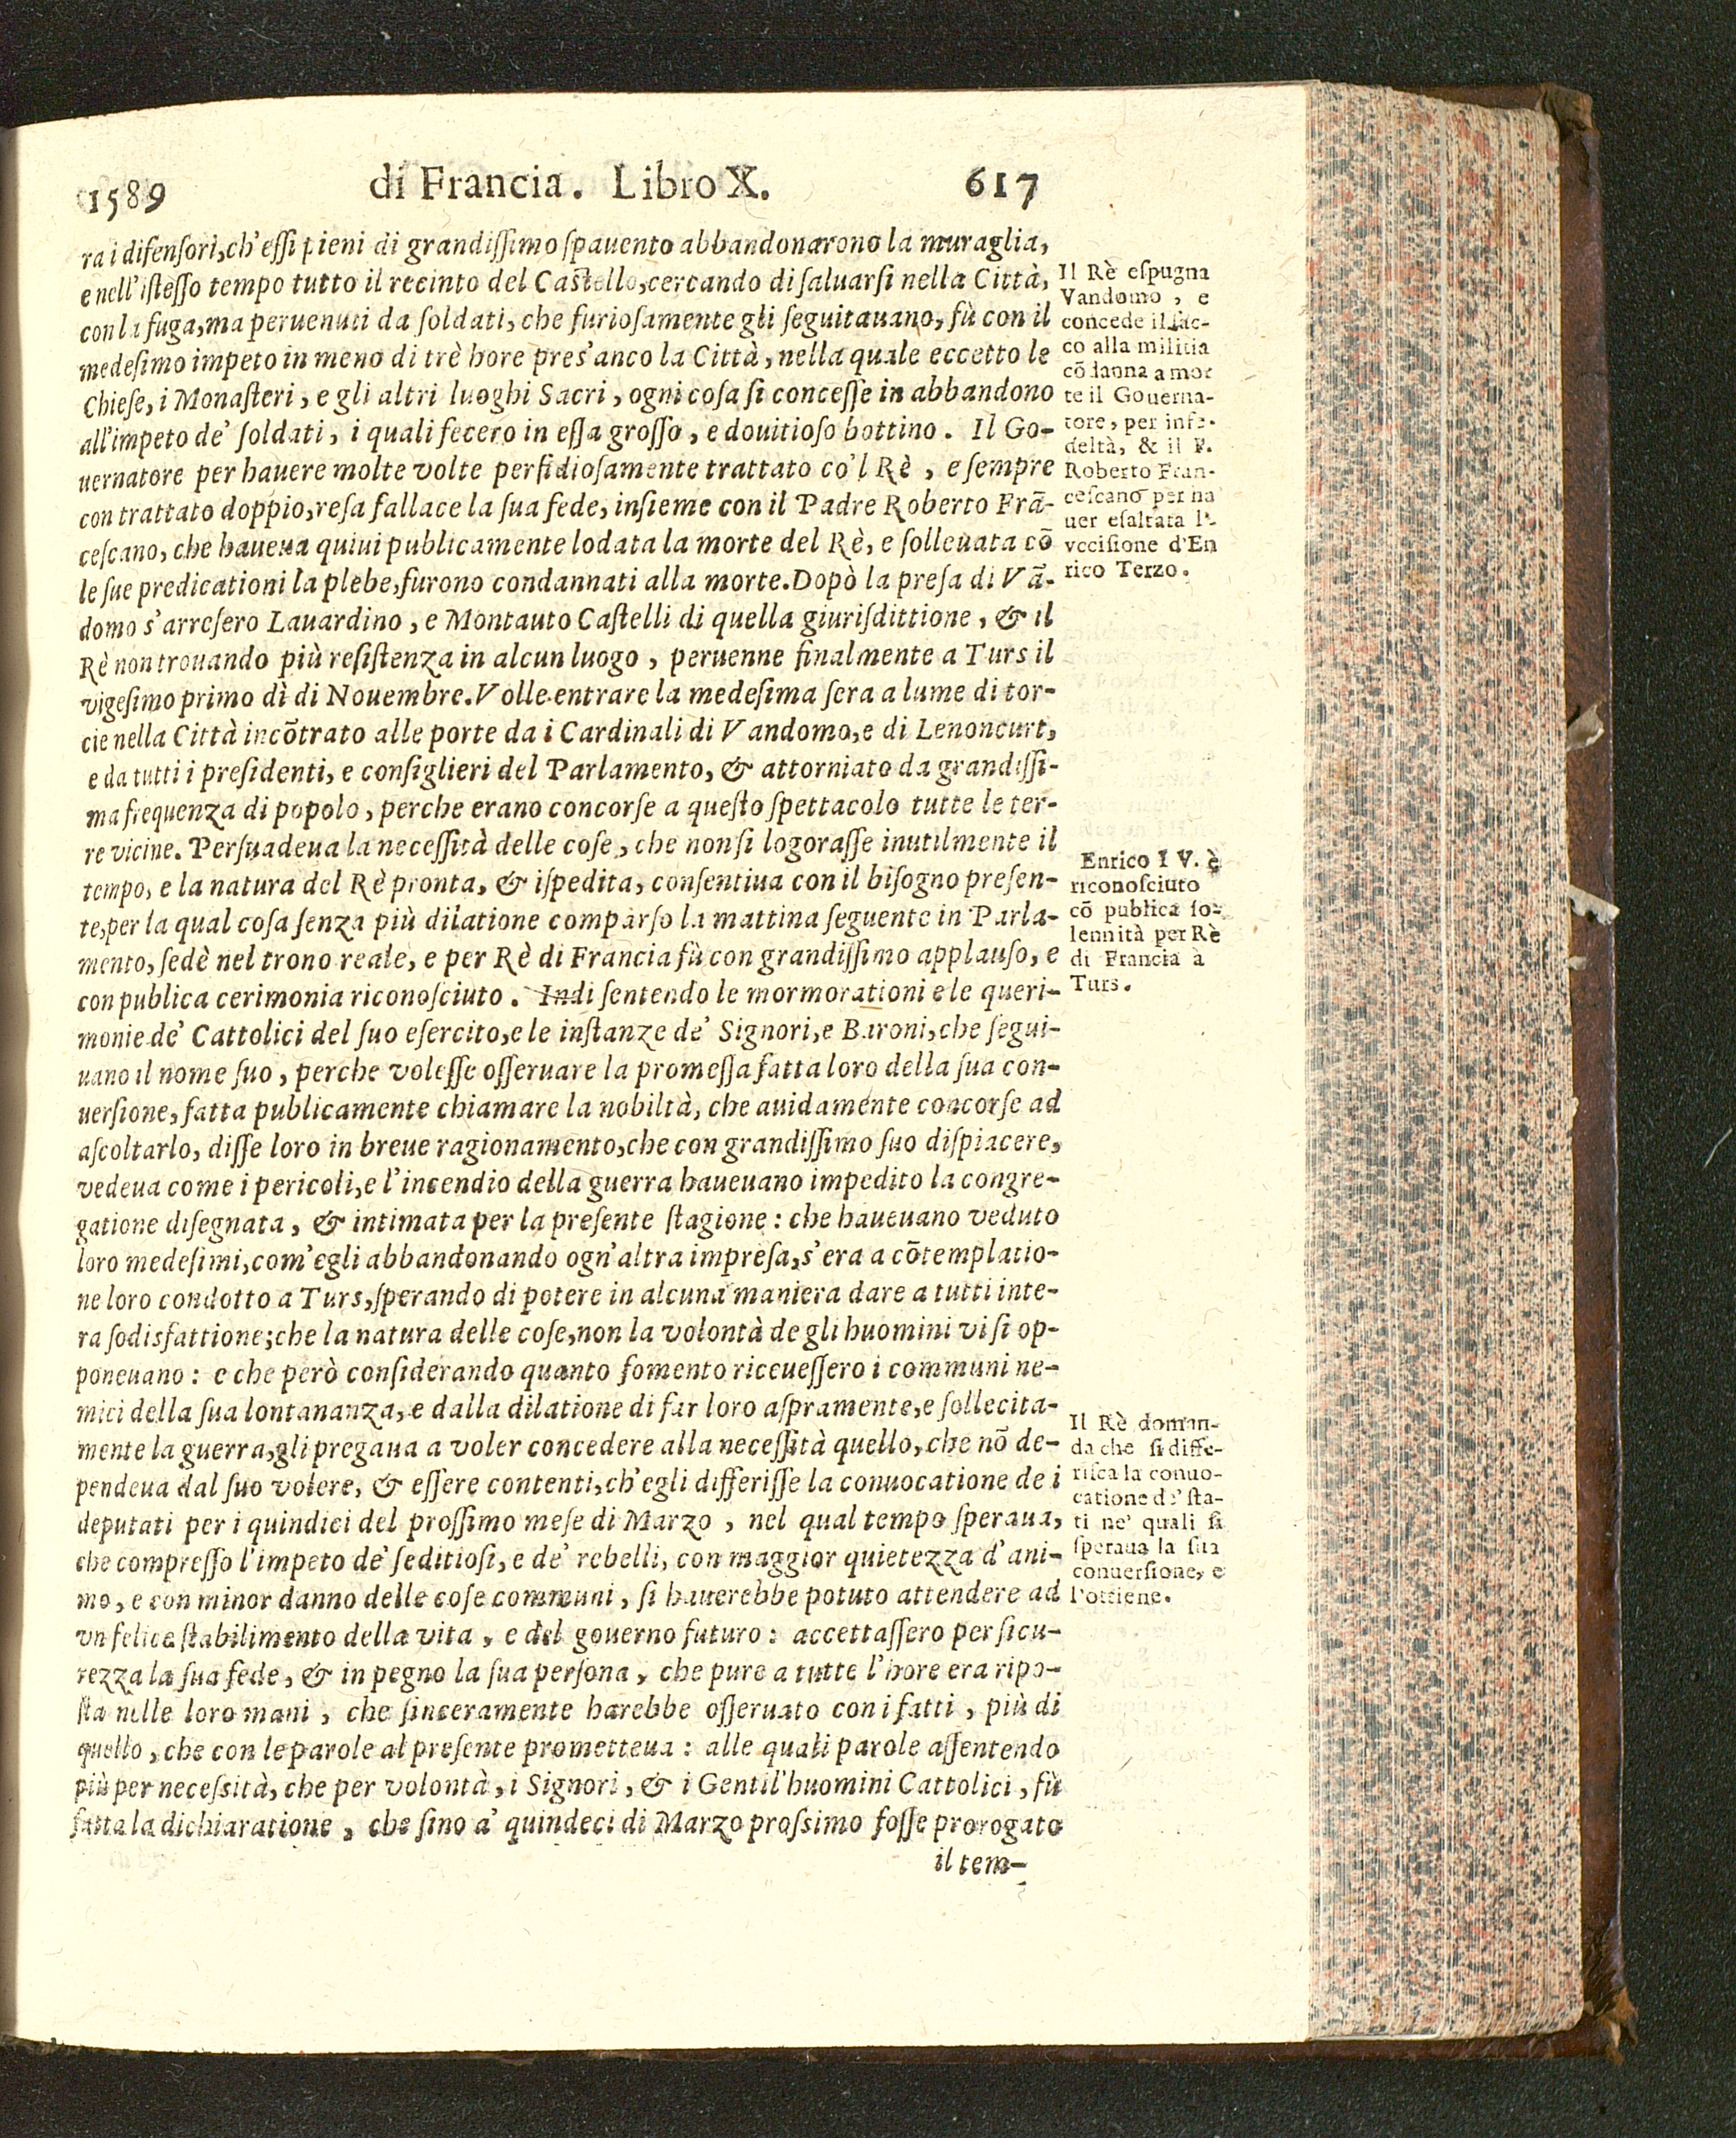 1589 di Francia. Libro X. 617
ra i difensori, ch'essi pieni di grandissimo spauento abbandonarono la muraglia,
e nell'istesso tempo tutto il recinto del Castello, cercando di saluarsi nella Città,
con la fuga, ma peruenuti da soldati, che furiosamente gli seguitauano, fù con il
medesimo impeto in meno di trè hore pres'anco la Città, nella quale eccetto le
Chiese, i Monasteri, e gli altri luoghi Sacri, ogni cosa si concesse in abbandono
all'impeto de' soldati, i quali fecero in essa grosso, e douitioso bottino. Il Go-
uernatore per hauere molte volte perfidiosamente trattato co'l Rè, e sempre
con trattato doppio, resa fallace la sua fede, insieme con il Padre Roberto Frā-
cescano, che haueua quiui publicamente lodata la morte del Rè, e solleuata cō
le sue predicationi la plebe, furono condannati alla morte. Dopò la presa di Vā-
domo s'arresero Lauardino, e Montauto Castelli di quella giurisdittione, & il
Rè non trouando più resistenza in alcun luogo, peruenne finalmente a Turs il
vigesimo primo dì di Nouembre. Volle entrare la medesima sera a lume di tor-
cie nella Città incōtrato alle porte da i Cardinali di Vandomo, e di Lenoncurt,
e da tutti i presidenti, e consiglieri del Parlamento, & attorniato da grandissi-
ma frequenza di popolo, perche erano concorse a questo spettacolo tutte le ter-
re vicine. Persuadeua la necessità delle cose, che non si logorasse inutilmente il
tempo, e la natura del Rè pronta, & ispedita, consentiua con il bisogno presen-
te, per la qual cosa senza più dilatione comparso la mattina seguente in Parla-
mento, sedè nel trono reale, e per Rè di Francia fù con grandissimo applauso, e
con publica cerimonia riconosciuto. Indi sentendo le mormorationi e le queri-
monie de' Cattolici del suo esercito, e le instanze de' Signori, e Baroni, che segui-
uano il nome suo, perche volesse osseruare la promessa fatta loro della sua con-
uersione, fatta publicamente chiamare la nobiltà, che auidamente concorse ad
ascoltarlo, disse loro in breue ragionamento, che con grandissimo suo dispiacere,
vedeua come i pericoli, e l'incendio della guerra haueuano impedito la congre-
gatione disegnata, & intimata per la presente stagione: che haueuano veduto
loro medesimi, com'egli abbandonando ogn'altra impresa, s'era a cōtemplatio-
ne loro condotto a Turs, sperando di potere in alcuna maniera dare a tutti inte-
ra sodisfattione; che la natura delle cose, non la volontà de gli huomini vi si op-
poneuano: e che però considerando quanto fomento riceuessero i communi ne-
mici della sua lontananza, e dalla dilatione di far loro aspramente, e sollecita-
mente la guerra, gli pregaua a voler concedere alla necessità quello, che nō de-
pendeua dal suo volere, & essere contenti, ch'egli differisse la conuocatione de i
deputati per i quindici del prossimo mese di Marzo, nel qual tempo speraua,
che compresso l'impeto de' seditiosi, e de' rebelli, con maggior quietezza d'ani-
mo, e con minor danno delle cose communi, si hauerebbe potuto attendere ad
vn felice stabilimento della vita, e del gouerno futuro: accettassero per sicu-
rezza la sua fede, & in pegno la sua persona, che pure a tutte l'hore era ripo-
sta nelle loro mani, che sinceramente harebbe osseruato con i fatti, più di
quello, che con le parole al presente prometteua: alle quali parole assentendo
più per necessità, che per volontà, i Signori, & i Gentil'huomini Cattolici, fù
fatta la dichiaratione, che sino a' quindeci di Marzo prossimo fosse prorogato
il tem-
Il Rè espugna
Vandomo, e
concede il sac-
co alla militia
cōdanna a mor
te il Gouerna-
tore, per infe-
deltà, & il F.
Roberto Fran-
cescano per ha
uer esaltata l'-
vccisione d'En
rico Terzo.
Enrico IV. è
riconosciuto
cō publica so-
lennità per Rè
di Francia à
Turs.
Il Rè doman-
da che si diffe-
risca la conuo-
catione de' sta-
ti ne' quali si
speraua la sua
conuersione, e
l'ottiene.